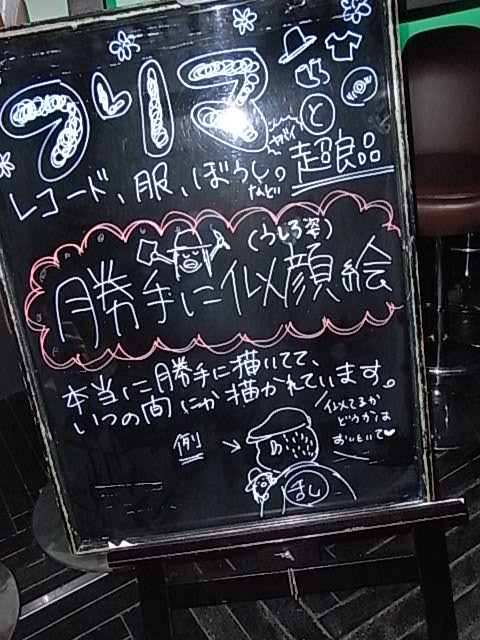 フリマ
レコード、服、ぼうし。など
と
超良品
(うしろ姿)
勝手に似顔絵
本当に勝手に描いてて、
いつの間にか描かれています。
例
似てるか
どうかは
おいといて♥
乱